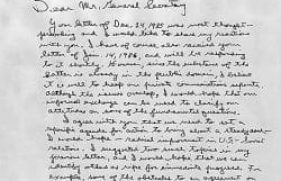 Dear Mr. General Secretary
Your letter of Dec. 24, 1985 was most thought-
provoking and I would like to share my reactions
with you. I have of course also received your
letter of Jan. 14, 1986, and will be responding
to it shortly. However, since the substance of the
latter is already in the public domain, I believe
it is well to keep our private communications separate,
although the issues overlap, I would hope that our
informal exchange can be used to clarify our
attitudes on some of the fundamental questions.
I agree with you that we need to set a
specific agenda for action to bring about a steady and -
I would hope - radical improvement in U.S.- Soviet
relations. I suggested two such topics in my
previous letter, and I would hope that we can
identify others as ripe for immediate progress. For
example, some of the obstacles to an agreement on